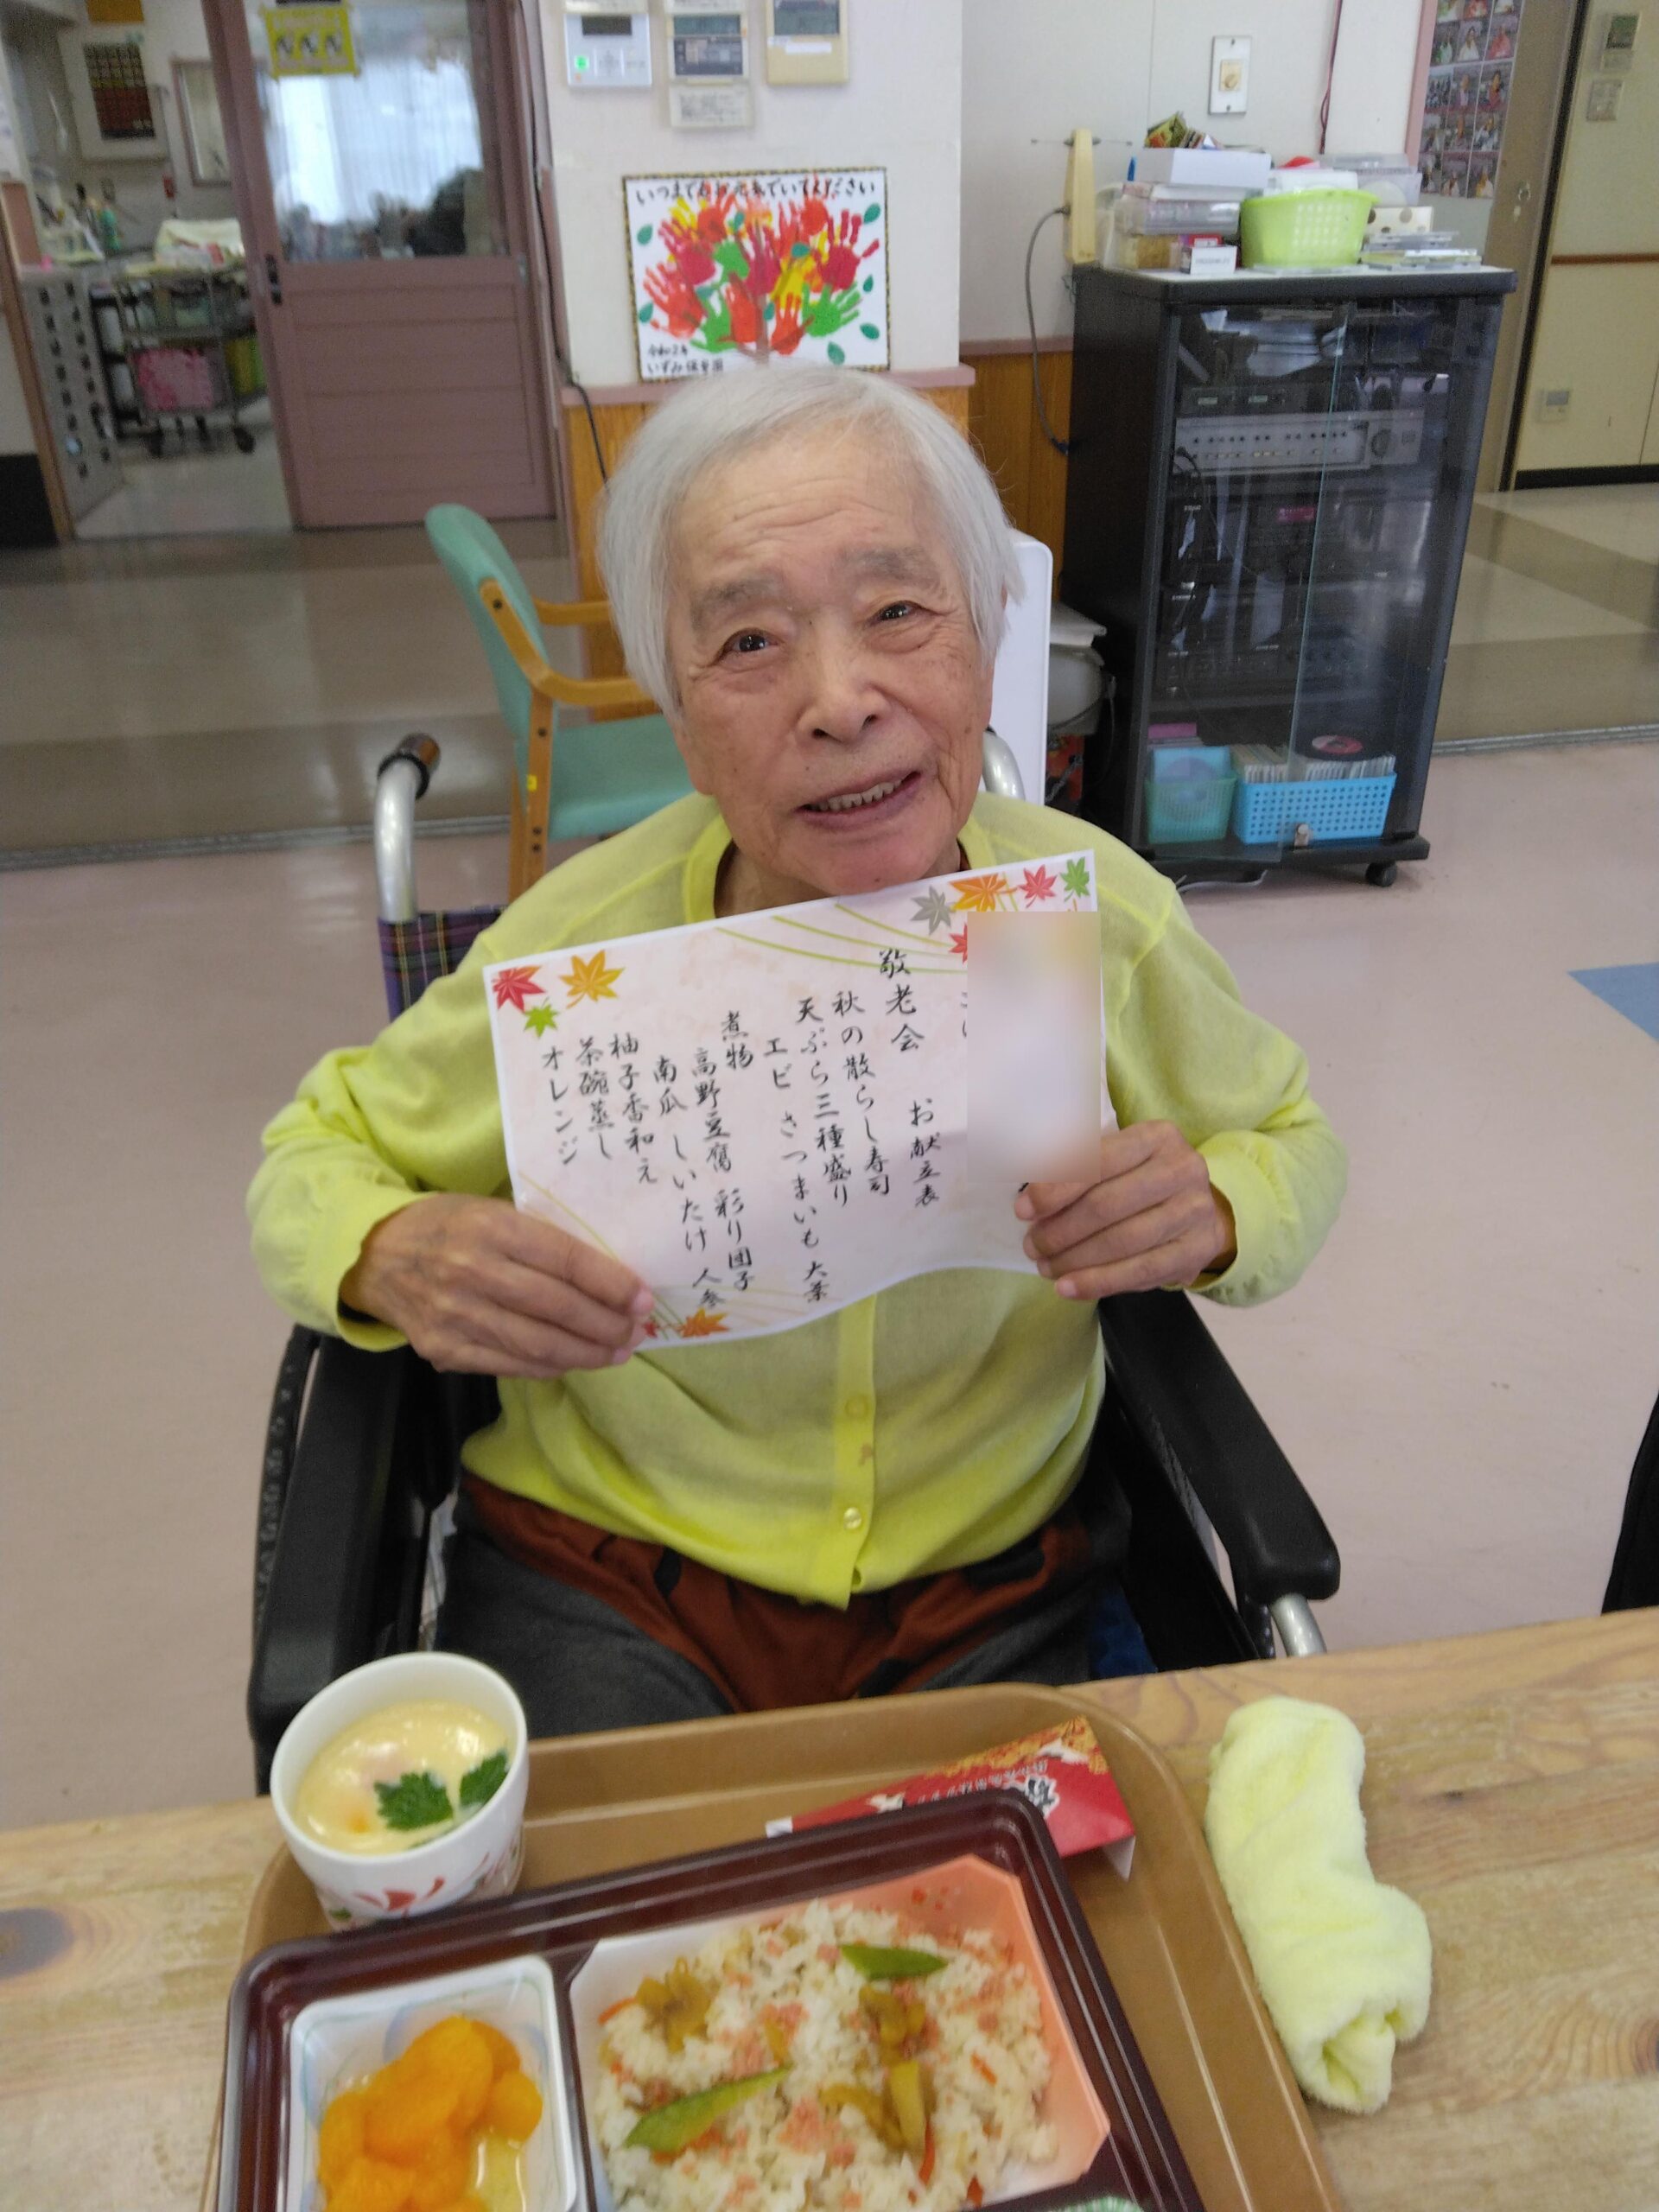 いつまでもお元気でいてください
令和2年
いずみ保育園
敬老会　お献立表
秋の散らし寿司
天ぷら三種盛り
エビ　さつまいも　大葉
煮物
高野豆腐　彩り団子
南瓜　しいたけ　人参
柚子香和え
茶碗蒸し
オレンジ